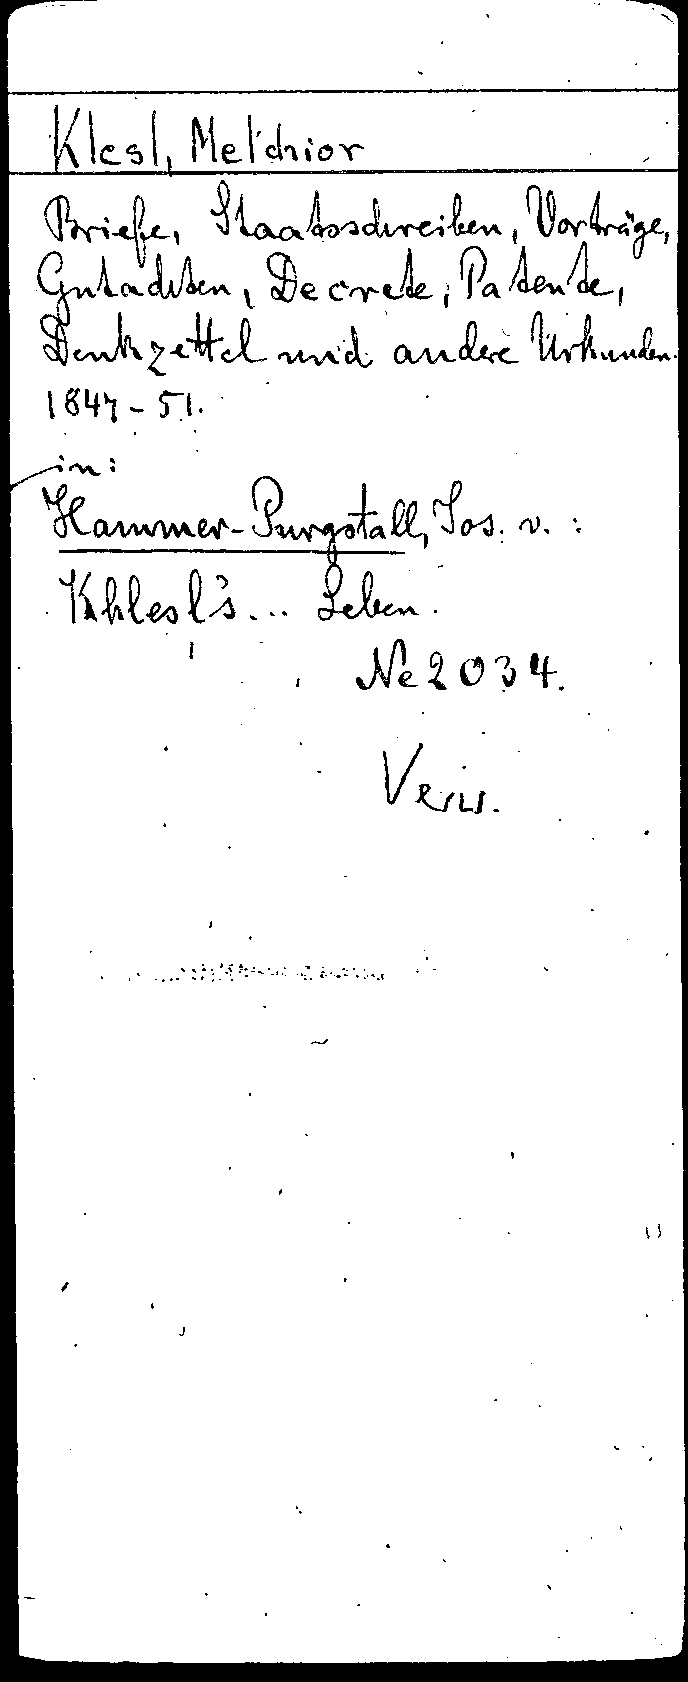 Klesl, Melchior
Briefe, Staatsschreiben, Vorträge,
Gutachten, Decrete, Patente,
Denkzettel und andere Urkunden.
1847-51.
in:
Hammer-Purgstall, Jos. v.:
Khlesl's... Leben.
Ne 2034.
Verw.